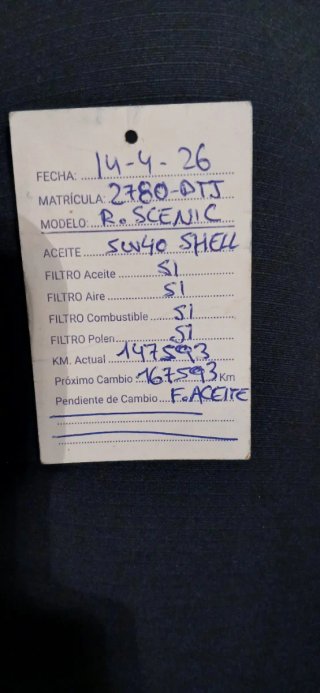 FECHA: 14-4-26
MATRÍCULA: 2780-DTJ
MODELO: R. SCENIC
ACEITE 5W40 SHELL
FILTRO Aceite SI
FILTRO Aire SI
FILTRO Combustible SI
FILTRO Polen SI
KM. Actual 147593
Próximo Cambio 167593 Km
Pendiente de Cambio F. ACEITE